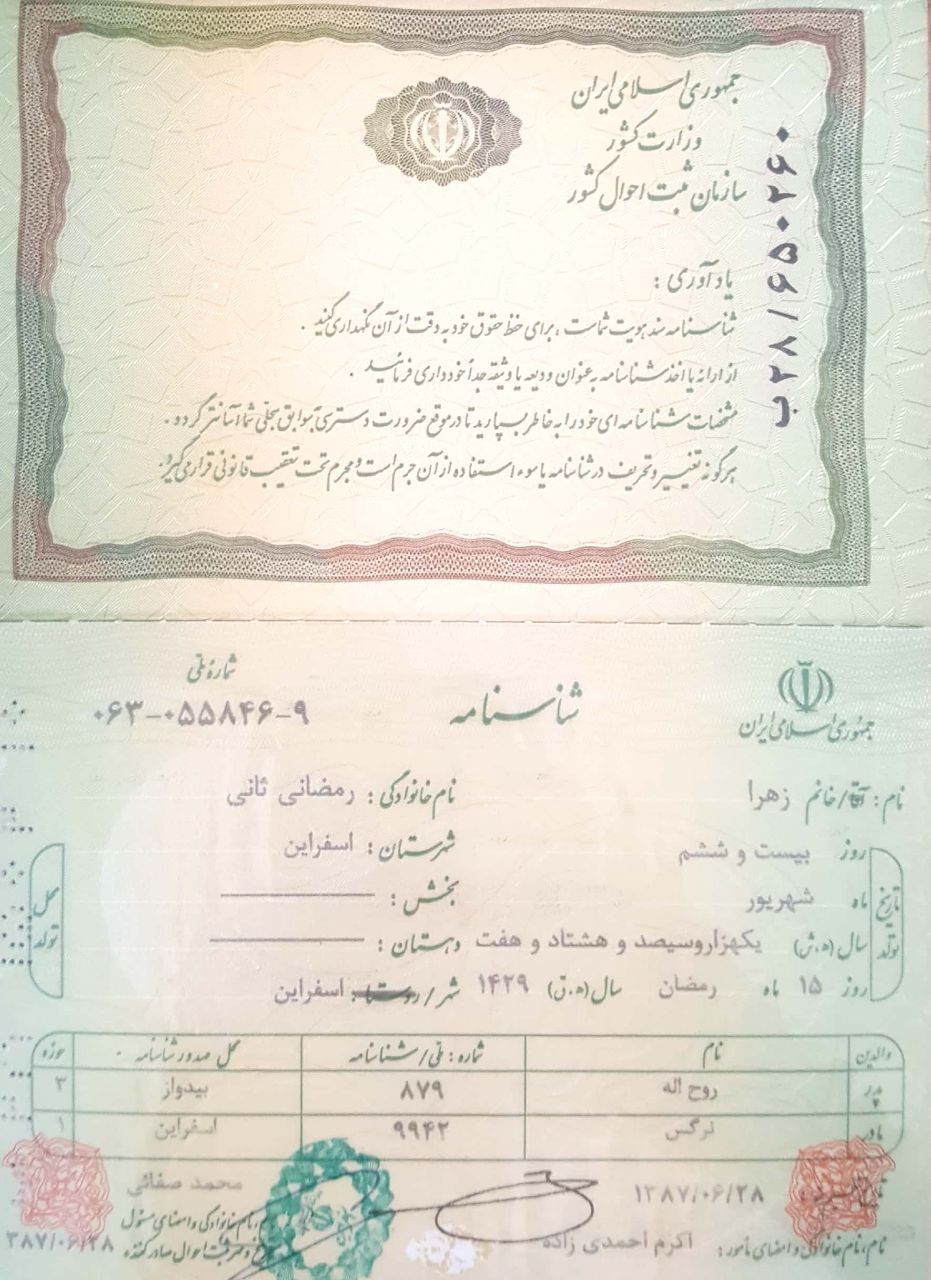 جمهوری اسلامی ایران
وزارت کشور
سازمان ثبت احوال کشور
ب۲۸/۶۵۰۲۶۰
یادآوری :
شناسنامه سند هویت شماست ، برای حفظ حقوق خود به دقت از آن نگهداری کنید .
از ارائه یا اخذ شناسنامه به عنوان ودیعه یا وثیقه جداً خودداری فرمائید .
مشخصات شناسنامه ای خود را به خاطر بسپارید تا در موقع ضرورت دسترسی به سوابق سجلی شما آسانتر گردد .
هرگونه تغییر و تحریف در شناسنامه یا سوء استفاده از آن جرم است و مجرم تحت تعقیب قانونی قرار می گیرد.
جمهوری اسلامی ایران
شناسنامه
شماره ملی
۰۶۳-۰۵۵۸۴۶-۹
نام : آقا/خانم زهرا نام خانوادگی : رمضانی ثانی
تاریخ تولد
روز بیست و ششم شهرستان : اسفراین
ماه شهریور بخش :
سال (ه.ش) یکهزاروسیصد و هشتاد و هفت دهستان :
روز ۱۵ ماه رمضان سال (ه.ق) ۱۴۲۹ شهر/روستا : اسفراین
محل تولد
والدین نام شماره : ملی/شناسنامه محل صدور شناسنامه حوزه
پدر روح اله ۸۷۹ بیدواز ۳
مادر نرگس ۹۹۴۲ اسفراین ۱
۱۳۸۷/۰۶/۲۸
محمد صفائی
نام، نام خانوادگی و امضای مأمور : اکرم احمدی زاده
نام خانوادگی و امضای مسئول
احوال صادرکننده
۳۸۷/۰۶/۲۸